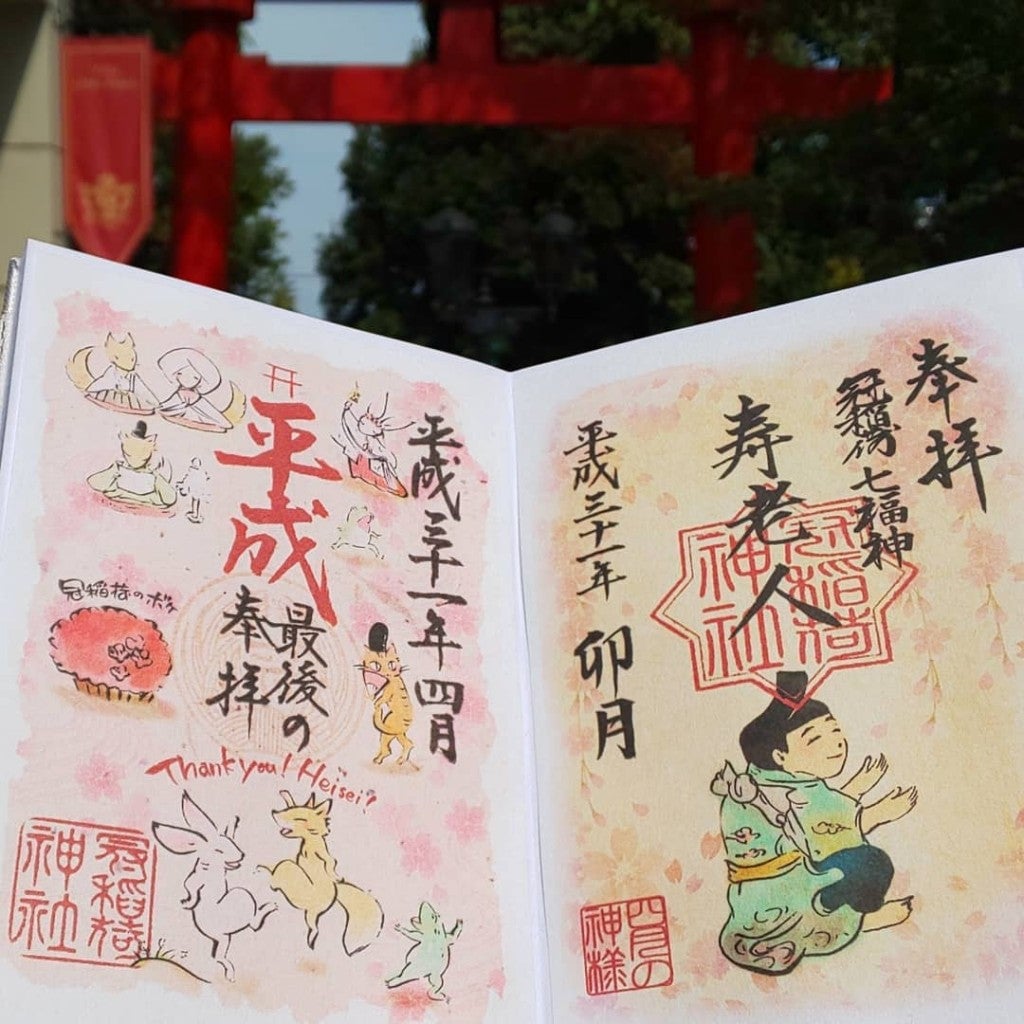 平成三十一年四月
平成
最後の
奉拝
冠稲荷のボケ
Thank you! Heisei!
冠稲荷
神社
奉拝
冠稲荷七福神
寿老人
冠稲荷
神社
平成三十一年 卯月
四月の
神様